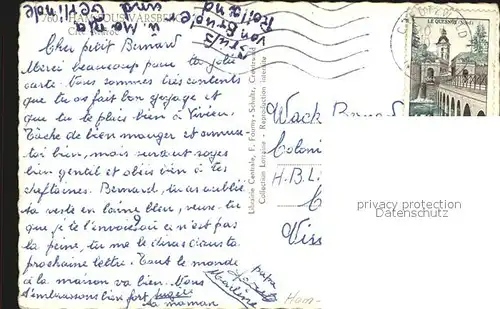 7601 HAM-SOUS-VARSBERG
Cité Maroc
Gruß
von Bruder
Roland
u. Ma Pa
und
Gerlinde
Cher petit Bernard
Merci beaucoup pour ta jolie
carte. Nous sommes très contents
que tu as fait bon voyage et
que tu te plais bien à Vivier.
Tâche de bien manger et amuse
toi bien, mais surtout soyes
bien gentil et obéis bien à tes
cheftaines. Bernard, tu as oublié
ta veste en laine bleu, veux-tu
que je te l'envoie, où ce n'est pas
la peine, tu me le diras dans ta
prochaine lettre. Tout le monde
à la maison va bien. Nous
t'embrassons bien fort
papa
Marlène
ta maman
Librairie Centrale, F. Fourny-Schultz, Creutzwald
Collection Lorraine - Reproduction interdite
LE QUESNOY (Nord)
Wack Bernard
Coloni
H.B.L
Viss
privacy protection
Datenschutz
Ham-